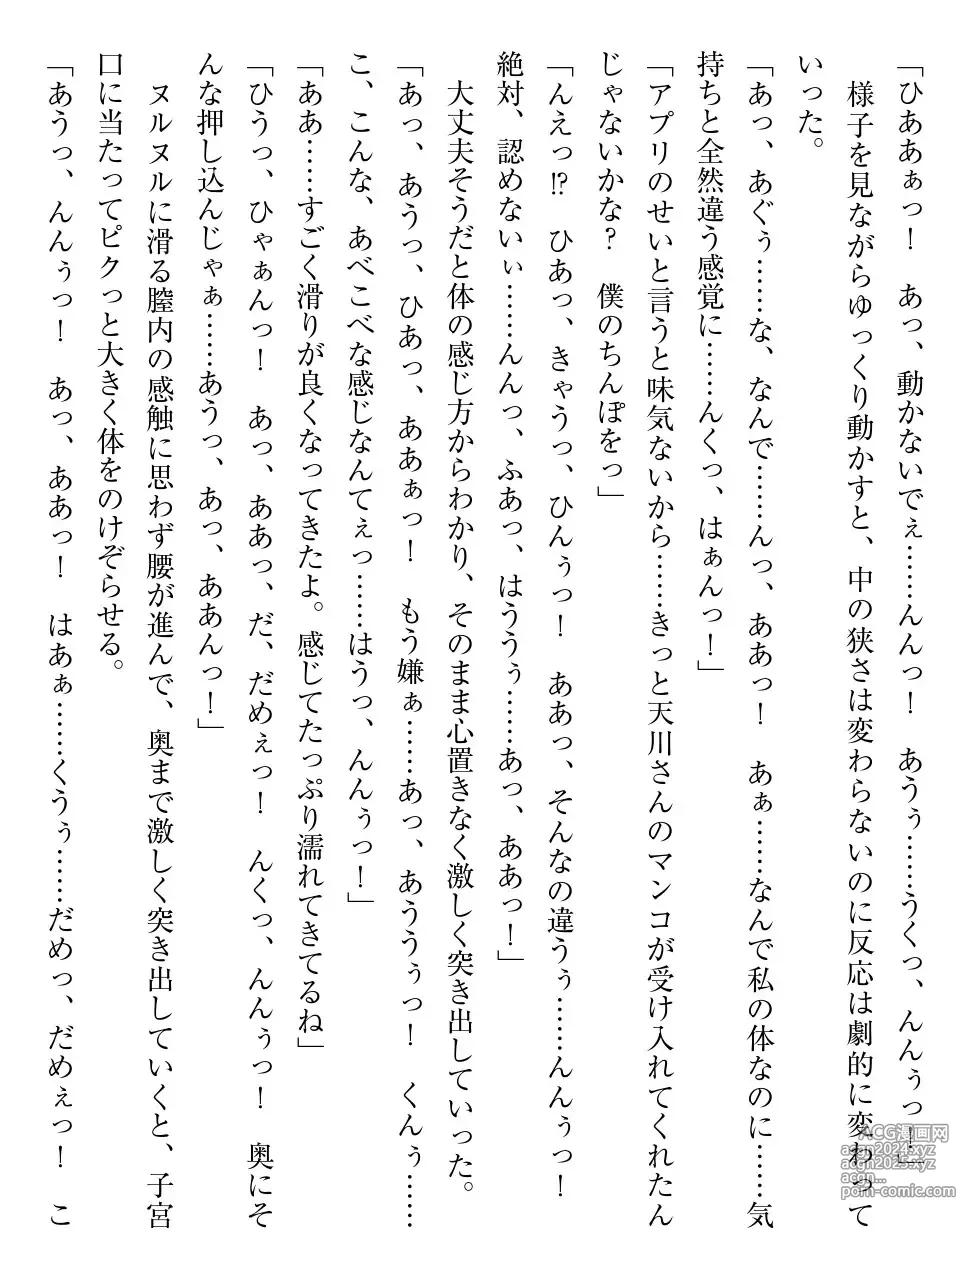 「ひああぁっ！　あっ、動かないでぇ……んんっ！　あうぅ……うくっ、んんぅっ！」
　様子を見ながらゆっくり動かすと、中の狭さは変わらないのに反応は劇的に変わって
いった。
「あっ、あぐぅ……な、なんで……んっ、ああっ！　あぁ……なんで私の体なのに……気
持ちと全然違う感覚に……んくっ、はぁんっ！」
「アプリのせいと言うと味気ないから……きっと天川さんのマンコが受け入れてくれたん
じゃないかな？　僕のちんぽをっ」
「んえっ!?　ひあっ、きゃうっ、ひんぅっ！　ああっ、そんなの違うぅ……んんぅっ！
絶対、認めないぃ……んんっ、ふあっ、はううぅ……あっ、ああっ！」
　大丈夫そうだと体の感じ方からわかり、そのまま心置きなく激しく突き出していった。
「あっ、あうっ、ひあっ、ああぁっ！　もう嫌ぁ……あっ、あううぅっ！　くんぅ……
こ、こんな、あべこべな感じなんてぇっ……はうっ、んんぅっ！」
「ああ……すごく滑りが良くなってきたよ。感じてたっぷり濡れてきてるね」
「ひうっ、ひゃぁんっ！　あっ、ああっ、だ、だめぇっ！　んくっ、んんぅっ！　奥にそ
んな押し込んじゃぁ……あうっ、あっ、ああんっ！」
　ヌルヌルに滑る膣内の感触に思わず腰が進んで、奥まで激しく突き出していくと、子宮
口に当たってピクっと大きく体をのけぞらせる。
「あうっ、んんぅっ！　あっ、ああっ！　はあぁ……くうぅ……だめっ、だめぇっ！　こ
ACG漫画网
acgn2050.xyz
acgn2025.xyz
acgn.xyz
porn-comic.com